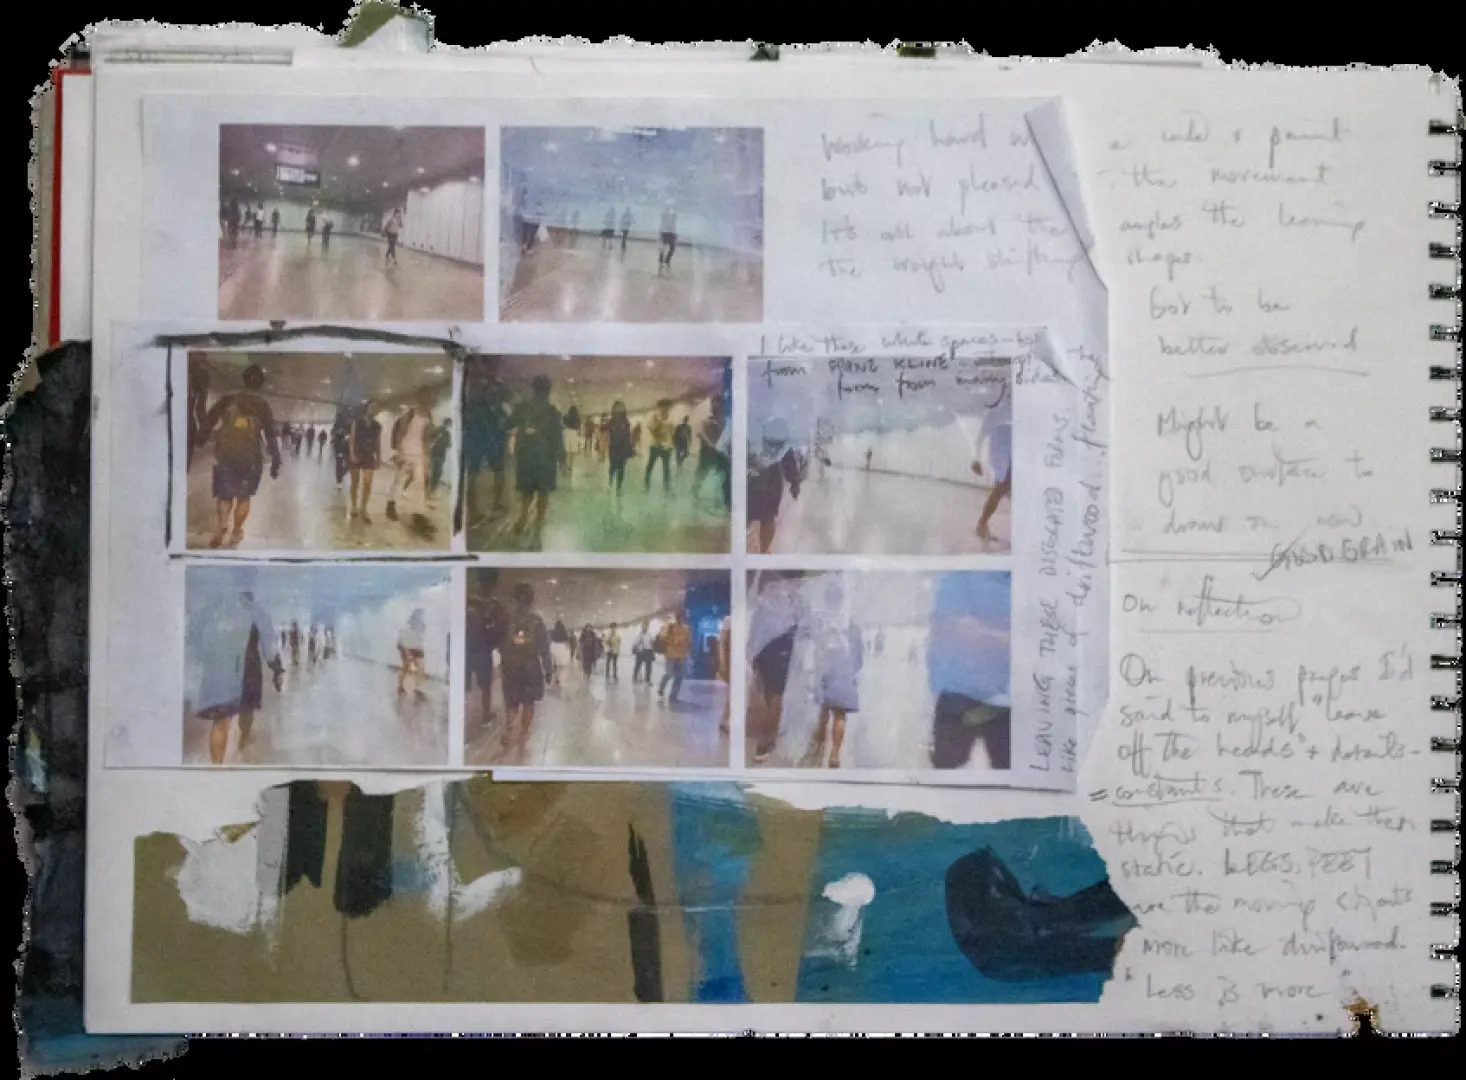 Working hard
but not pleased
It's all about the
the weight shifting
a wide + paint
the movement
angles the leaning
shapes.
Got to be
better observed
Might be a
good surface to
draw on now
GOOD GRAIN
I like these white spaces - but
from FRANZ KLINE
form from many sides
LEAVING THESE DISLOCATED FORMS
like pieces of driftwood... floating
On reflection
On previous pages I'd
said to myself "leave
off the heads" + details -
= constants. These are
things that make them
static. LEGS, FEET
are the moving
more like driftwood.
"Less is more"